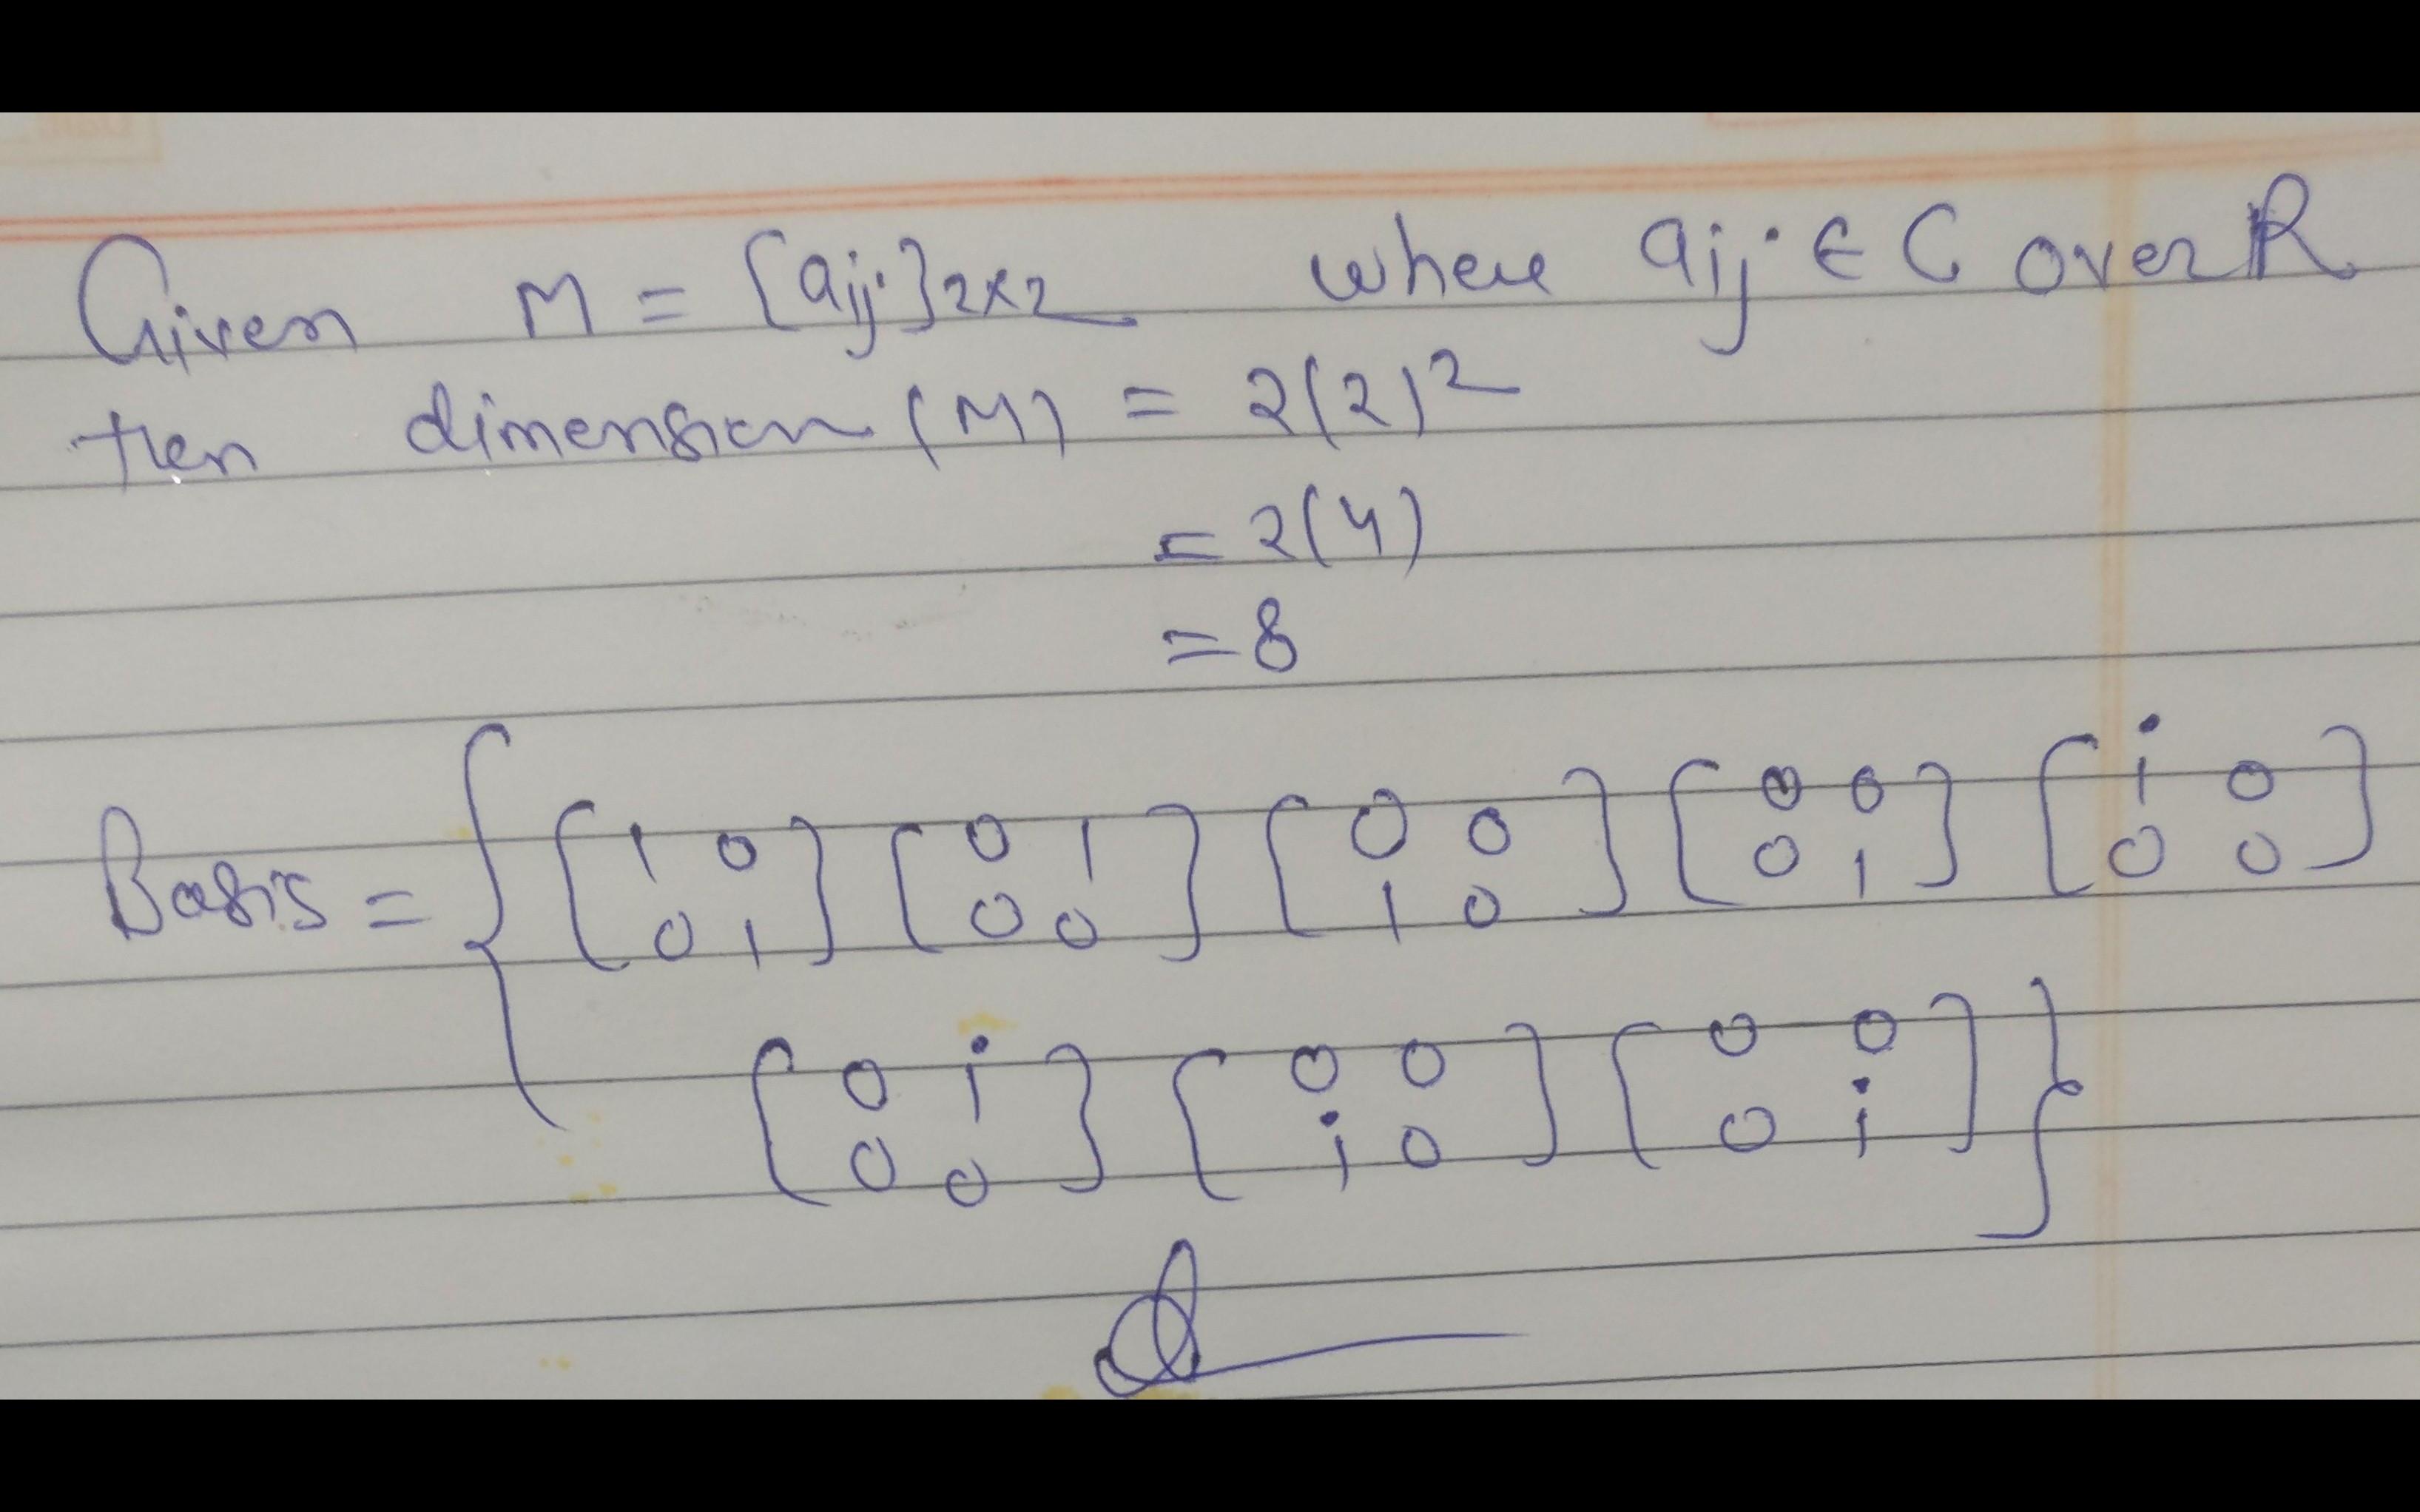 Given M = [aij]2×2 where aij ∈ C over R
then dimension (M) = 2(2)²
= 2(4)
= 8
Basis = { [1 0; 0 1] [0 1; 0 0] [0 0; 1 0] [0 0; 0 1] [i 0; 0 0]
[0 i; 0 0] [0 0; i 0] [0 0; 0 i] }